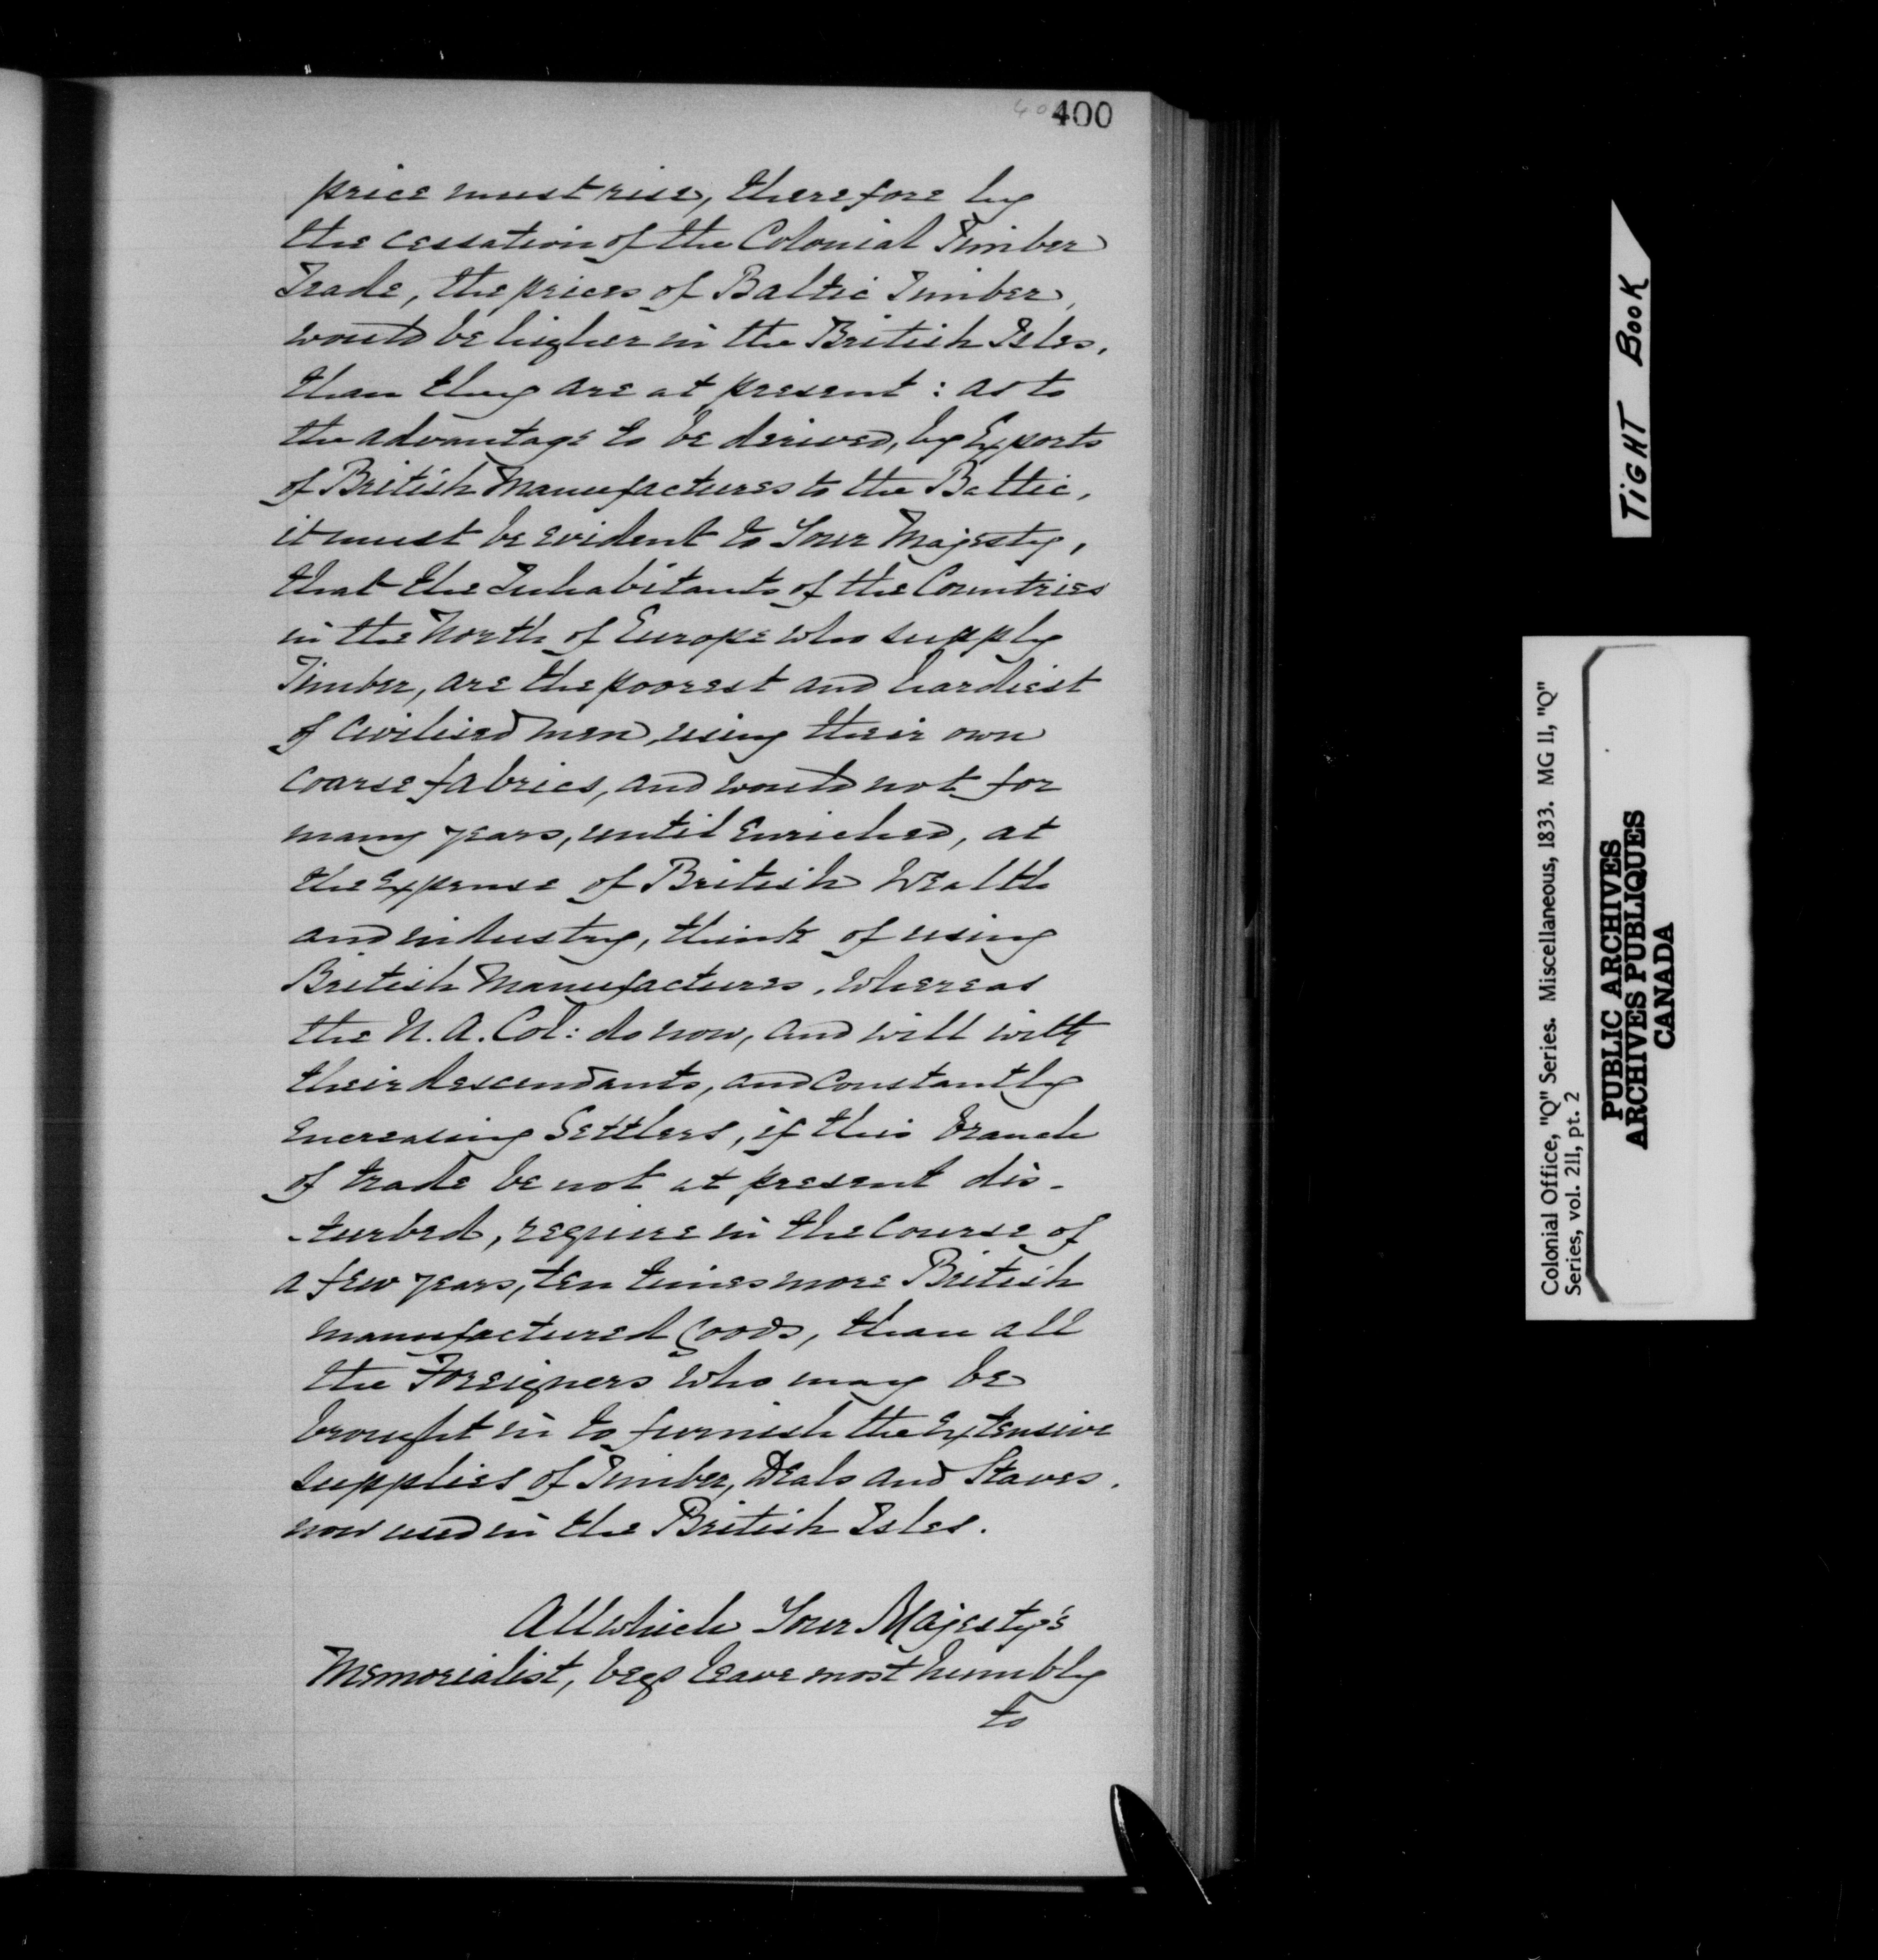 400
price must rise, therefore by
the cessation of the Colonial Timber
Trade, the prices of Baltic Timber,
would be higher in the British Isles,
than they are at present : as to
the advantage to be derived, by Exports
of British Manufactures to the Baltic,
it must be evident to Your Majesty,
that the Inhabitants of the Countries
in the North of Europe who supply
Timber, are the poorest and hardiest
of Civilised men, using their own
Coarse fabrics, and would not for
many years, until Enriched, at
the Expense of British Wealth
and industry, think of using
British Manufactures, Whereas
the N. A. Col: do now, and will with
their descendants, and constantly
Encreasing Settlers, if this branch
of trade be not at present dis-
-turbed, require in the Course of
a few years, ten times more British
manufactured Goods, than all
the Foreigners who may be
brought in to furnish the Extensive
supplies of Timber, Deals and Staves.
now used in the British Isles.
All which Your Majesty's
Memorialist, begs leave most humbly
to
TIGHT BOOK
Colonial Office, "Q" Series. Miscellaneous, 1833. MG 11, "Q"
Series, vol. 211, pt. 2
PUBLIC ARCHIVES
ARCHIVES PUBLIQUES
CANADA